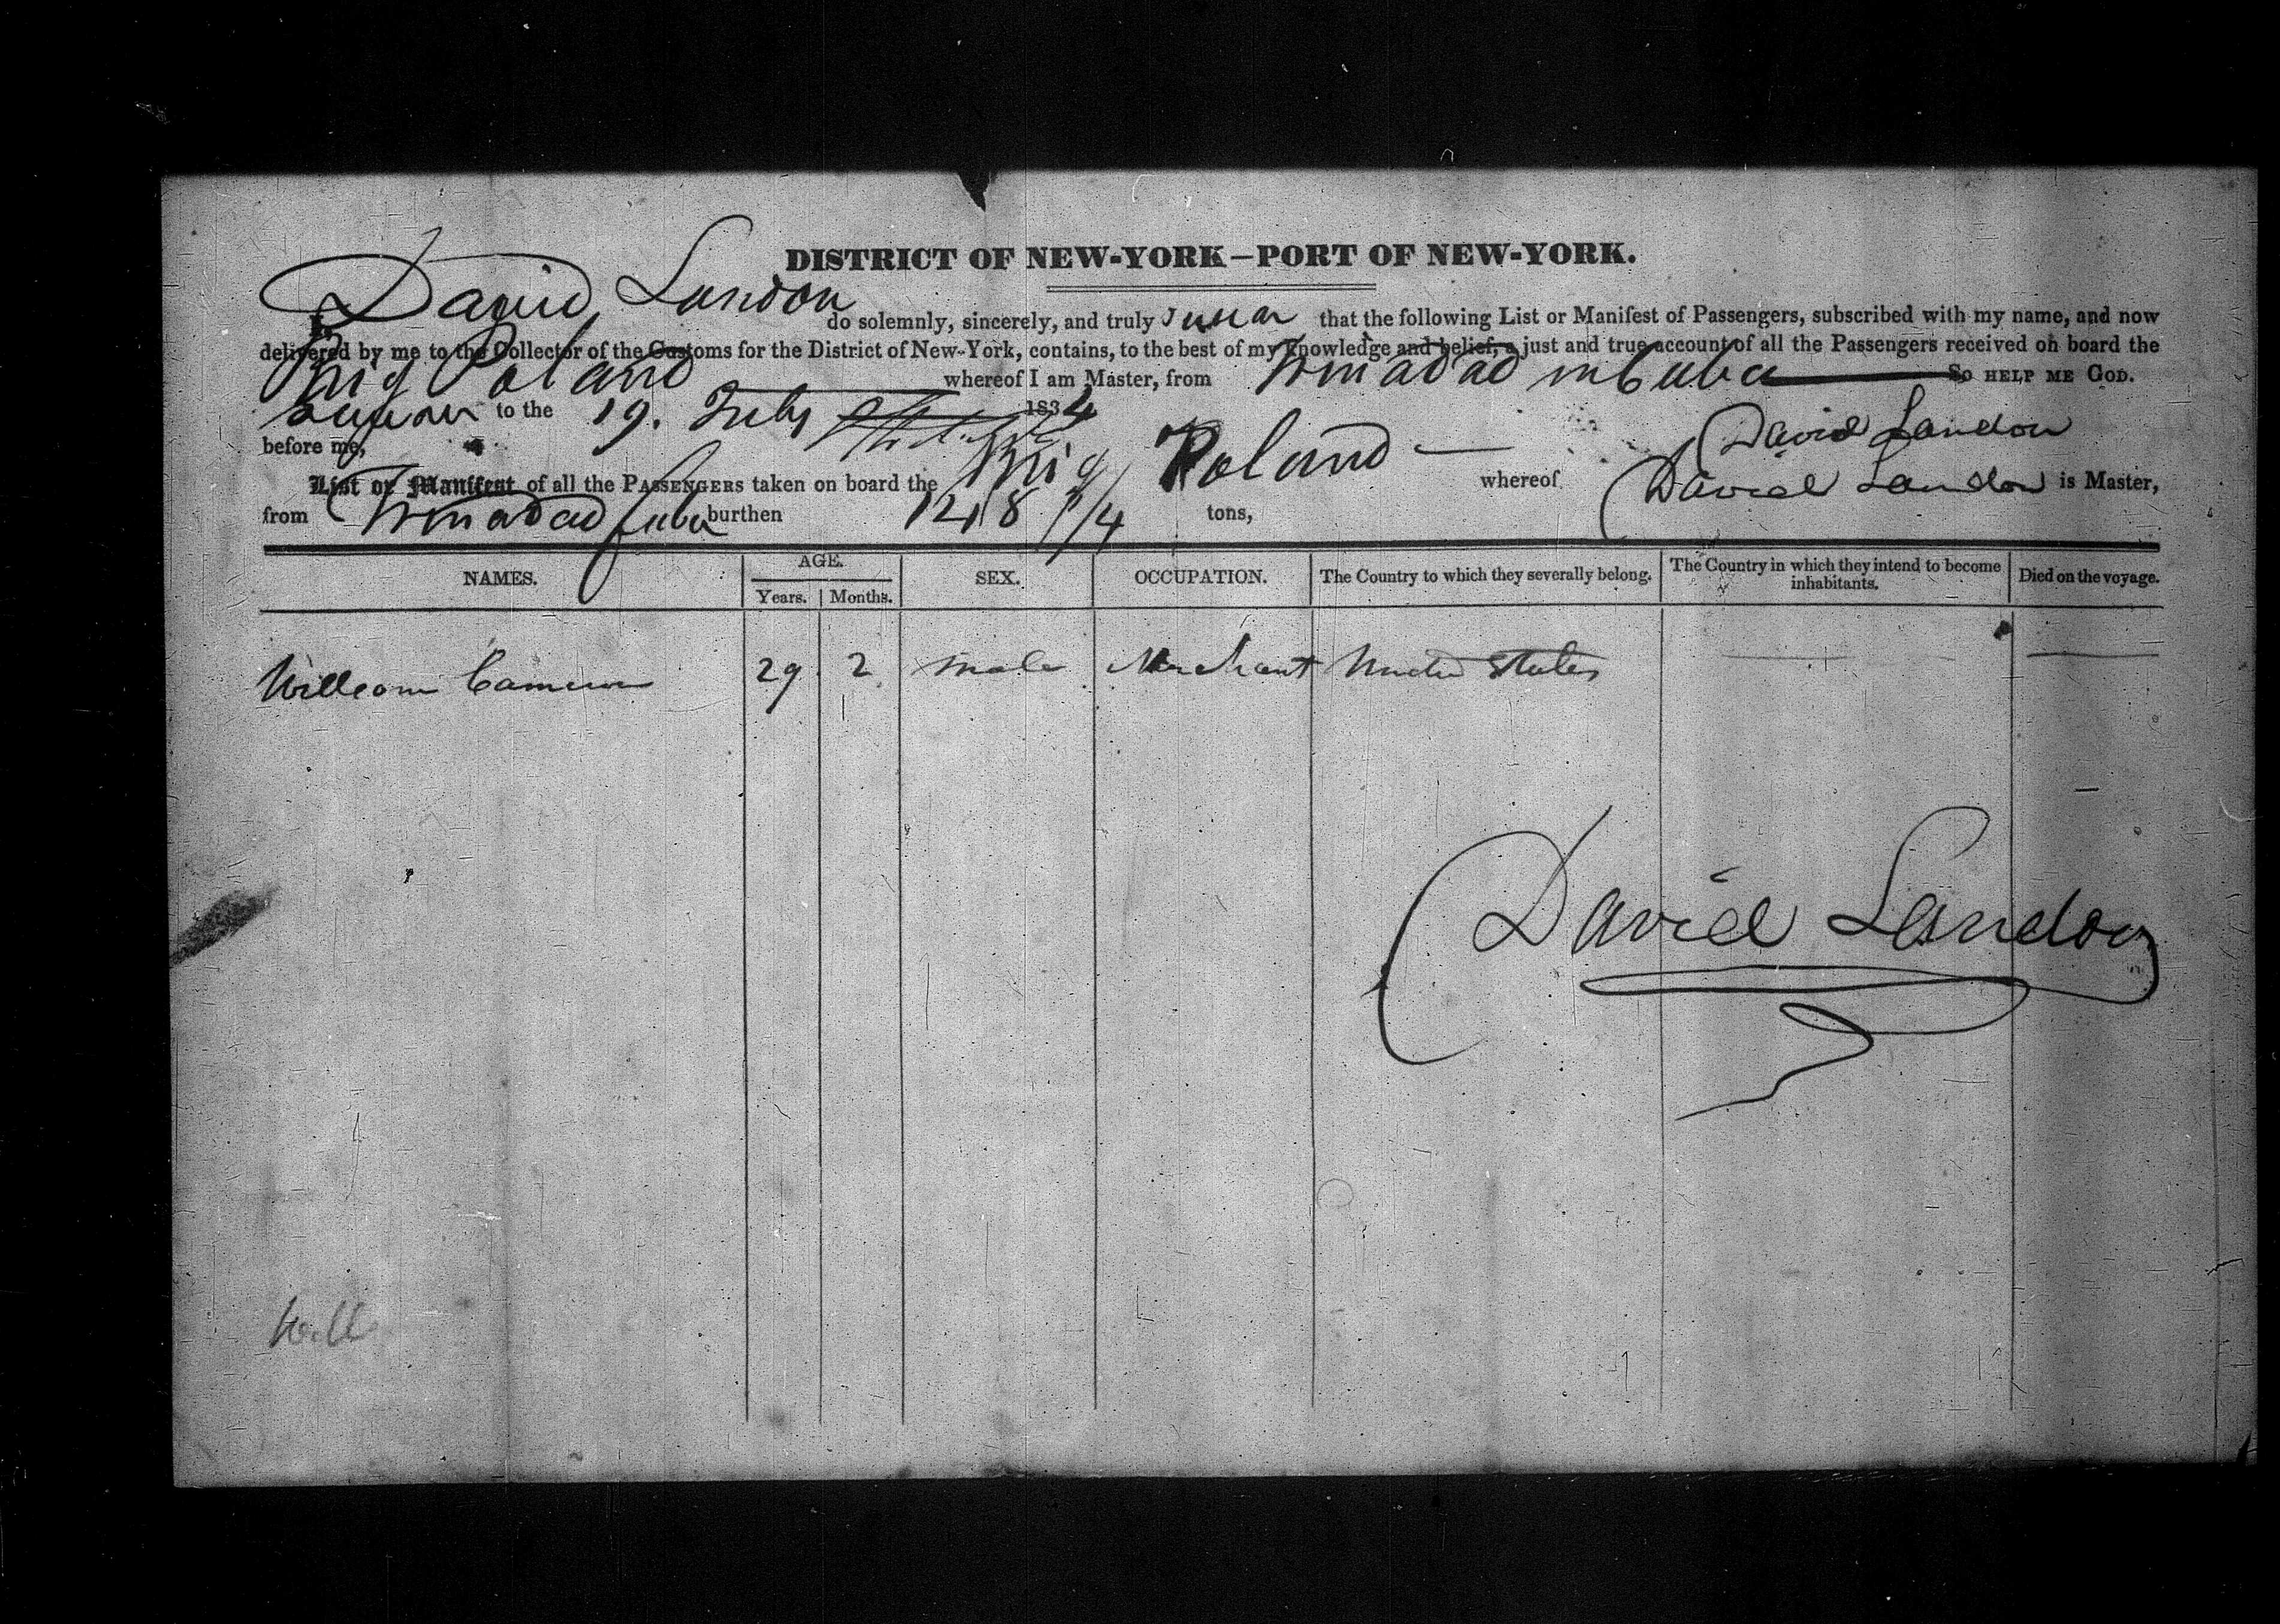 DISTRICT OF NEW-YORK—PORT OF NEW-YORK.
I, David Landon do solemnly, sincerely, and truly swear that the following List or Manifest of Passengers, subscribed with my name, and now
delivered by me to the Collector of the Customs for the District of New-York, contains, to the best of my knowledge and belief, a just and true account of all the Passengers received on board the
Brig Poland whereof I am Master, from Trinidad in Cuba So HELP ME GOD.
Sworn to the 19. July 1834
David Landon
before me,
List or Manifest of all the PASSENGERS taken on board the Brig Poland whereof David Landon is Master,
from Trinidad Cuba burthen tons,
NAMES. AGE. SEX. OCCUPATION. The Country to which they severally belong. The Country in which they intend to become inhabitants. Died on the voyage.
Years. Months.
William Cameron 29 2 male Merchant United States
David Landon
Will